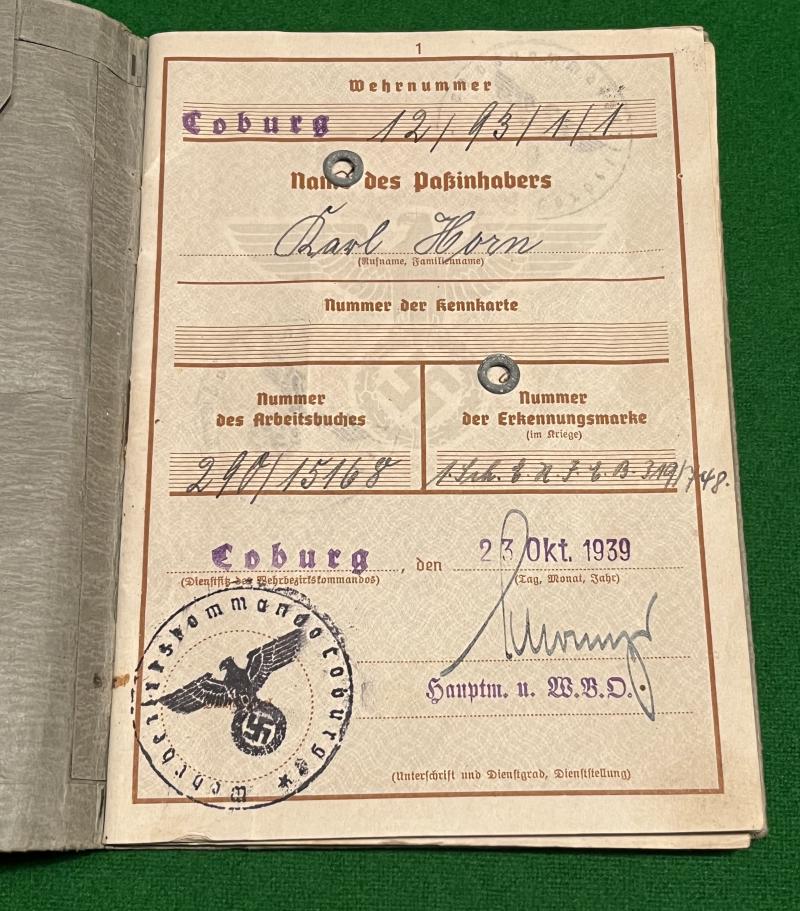 1
Wehrnummer
Coburg 12/93/1/1
Name des Paßinhabers
Karl Horn
(Rufname, Familienname)
Nummer der Kennkarte
Nummer
des Arbeitsbuches
290/15168
Nummer
der Erkennungsmarke
(im Kriege)
1. Sch. E. N. F. E. B. 319/748.
Coburg, den 23. Okt. 1939
(Dienstsitz des Wehrbezirkskommandos) (Tag, Monat, Jahr)
Wehrbezirkskommando Coburg
Hauptm. u. W.B.O.
(Unterschrift und Dienstgrad, Dienststellung)